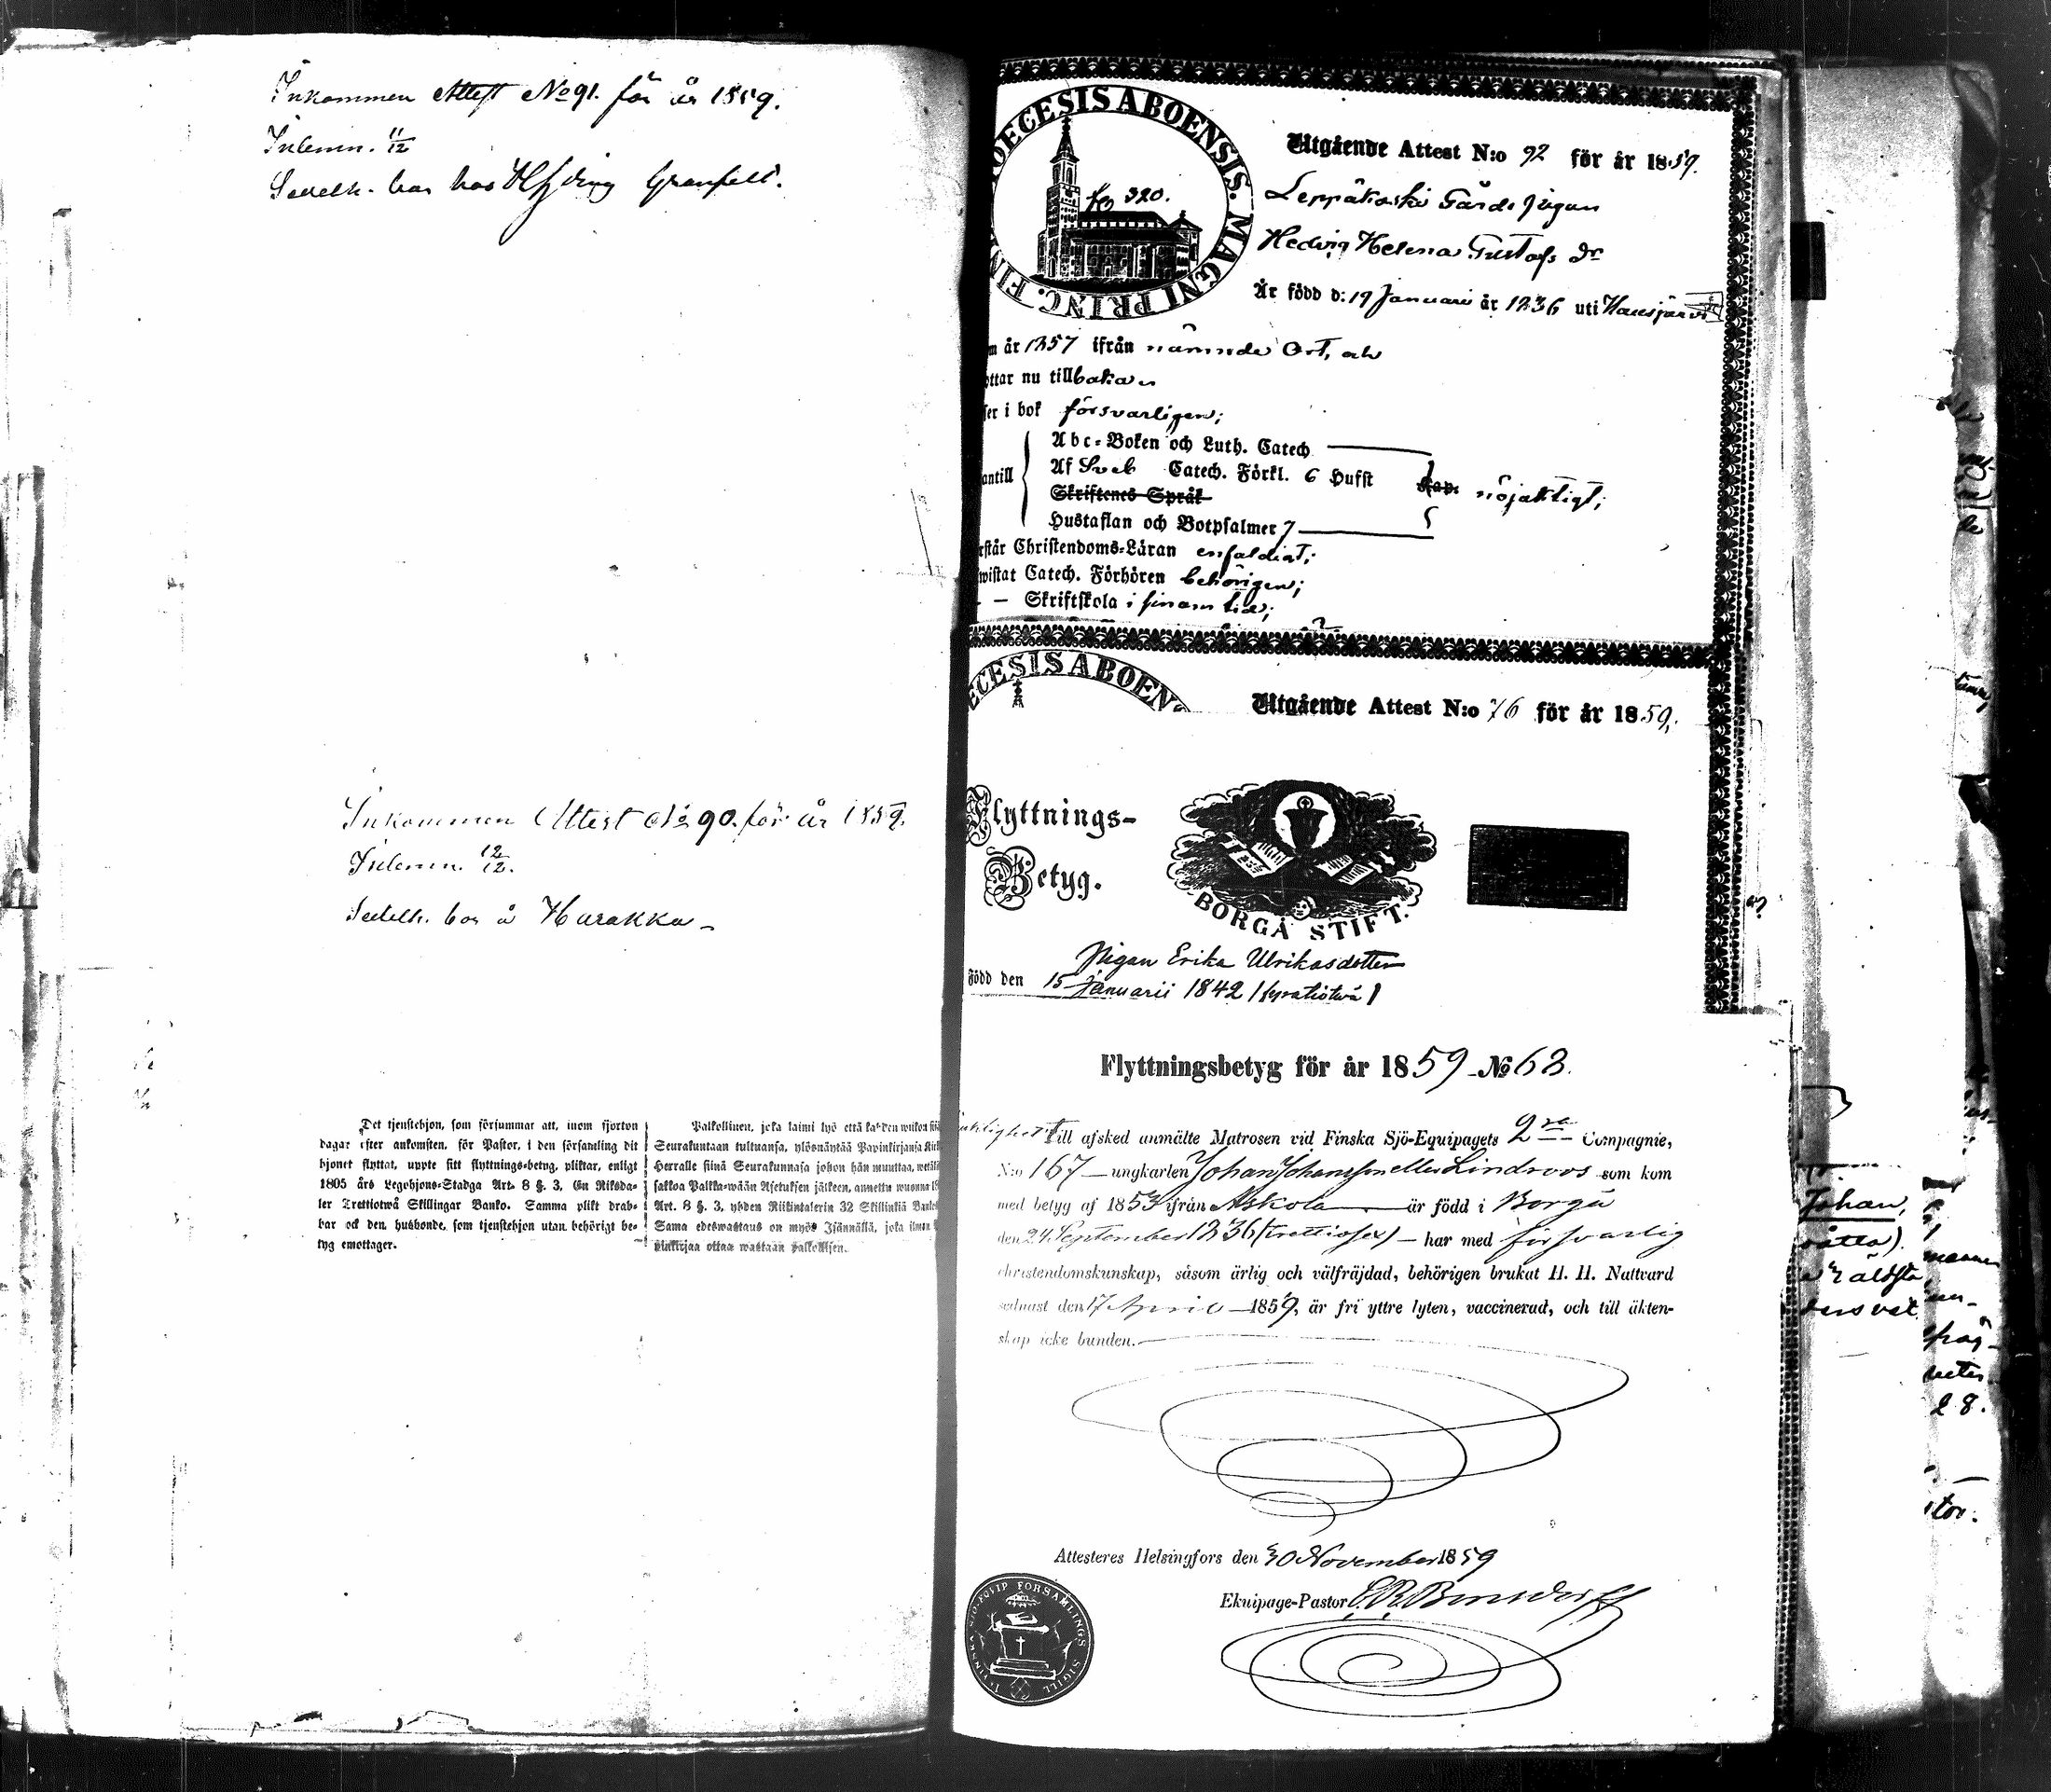 Inkommen Attest No 91. för år 1859.
Inlemn. 11/12
Sedelh. bor hos
Inkommen Attest No 90. för år 1859.
Inlemn. 12/12.
Sedelh. bor å Harakka
Det tjenstehjon, som försummar att, inom fjorton
dagar efter ankomsten, för Pastor, i den församling dit
hjonet flyttat, uppte sitt flyttnings-betyg, pliktar, enligt
1805 års Legohjons-Stadga Art. 8 §. 3, En Riksda-
ler Trettiotwå Skillingar Banko. Samma plikt drab-
bar ock den husbonde, som tjenstehjon utan behörigt be-
tyg emottager.
Palkollinen, joka laimi lyö että kahden wiikon
Seurakuntaan tultuansa, ylösnäytää Papinkirjansa
Herralle siinä Seurakunnasa johon hän muuttaa,
sakkoa Palkka-wään Asetuksen jälkeen, annettu wuonna
Art. 8 §. 3, yhden Riikintalerin 32 Skillinkiä
Sama edeswastaus on myös Isännällä, joka ilman
pinkirjaa ottaa wastaan palkollisen.
OECESIS ABOENSIS. MAGNI PRINC. FIN
320.
Utgående Attest N:o 92 för år 1859.
Leppäkoski Gårds pigan
Hedvig Helena Gustafs dr
Är född d: 19 Januari år 1836 uti Hausjärvi
m år 1857 ifrån nämnde Ort, och
ottar nu tillbaka
ser i bok försvarligen;
antill
Abc-Boken och Luth. Catech
Af Sveb Catech. Förkl. 6 Hufst
Skriftenes Språk
Kap. nöjaktigt;
Hustaflan och Botpsalmer 7
rstår Christendoms-Läran enfaldigt;
wistat Catech. Förhören behörigen;
— Skriftskola i sinom tid;
ECESIS ABOEN
Utgående Attest N:o 76 för år 1859.
Flyttnings-
Betyg.
BORGÅ STIFT.
Pigan Erika Ulrikasdotter
Född den 15 Januarii 1842
Flyttningsbetyg för år 1859 No 63.
Till afsked anmälte Matrosen vid Finska Sjö-Equipagets 2ra Compagnie,
N:o 167 ungkarlen Johan Johansson eller Lindroos som kom
med betyg af 1853 ifrån Askola är född i Borgå
den 24 September 1836 (trettiosex) – har med försvarlig
christendomskunskap, såsom ärlig och välfräjdad, behörigen brukat H. H. Nattvard
sednast den 17 April 1859, är fri yttre lyten, vaccinerad, och till äkten-
skap icke bunden.
Attesteres Helsingfors den 30 November 1859
Ekuipage-Pastor
1. FINSKA SJÖ-EQVIP FÖRSAMLINGS SIGILL
Johan,
28.